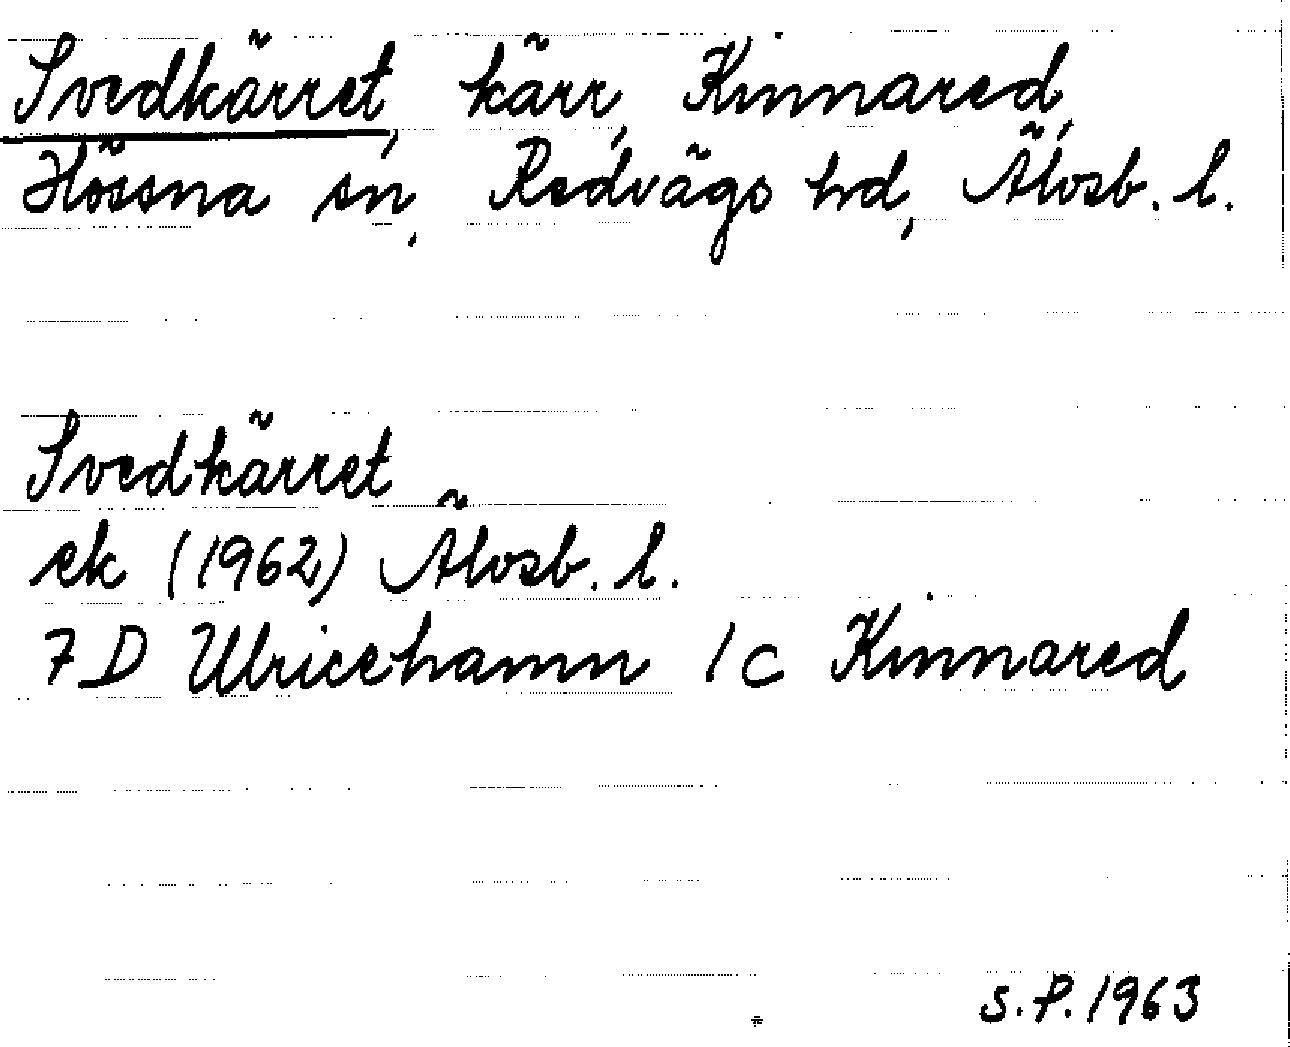 Svedkärret, kärr, Kinnared,
Hössna sn, Redvägs hd, Älvsb. l.
Svedkärret
ek (1962) Älvsb. l.
7D Ulricehamn 1c Kinnared
S.P. 1963